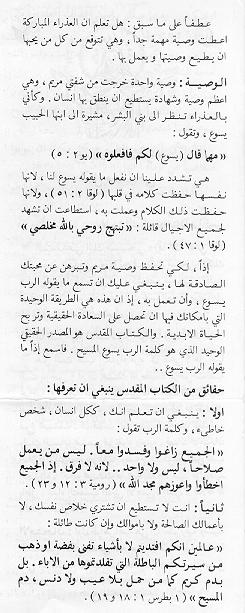 عطفاً على ما سبق : هل تعلم ان العذراء المباركة
اعطت وصية مهمة جداً ، وهي تتوقع من كل من يحبها
ان يطيع وصيتها و يعمل بها .
الـوصيــة : وصية واحدة خرجت من شفتي مريم ، وهي
اعظم وصية وشهادة يستطيع ان ينطق بها انسان . وكأني
بالعذراء تنظر الى بني البشر ، مشيرة الى ابنها الحبيب
يسوع ، وتقول :
«مهما قال ( يسوع ) لكم فافعلوه» ( يو ٢ : ٥ )
هي تشدد علينا ان نفعل ما يقوله يسوع لنا ، لانها
نفسها حفظت كلامه في قلبها ( لوقا ٢ : ٥١ ) ، ولانها
حفظت ذلك الكلام وعملت به ، استطاعت ان تشهد
لجميع الاجيال قائلة : «تبتهج روحي بالله مخلصي»
( لوقا ١ : ٤٧ ) .
إذاً ، لكي تحفظ وصية مريم وتبرهن عن محبتك
الصادقة لها ، ينبغي عليك ان تسمع ما يقوله الرب
يسوع ، وأن تعمل به ، إذ ان هذه هي الطريقة الوحيدة
التي بامكانك فيها ان تحصل على السعادة الحقيقية وتربح
الحياة الابدية . والكتاب المقدس هو المصدر الحقيقي
الوحيد الذي هو كلمة الرب يسوع المسيح . فاسمع إذاً ما
يقوله الرب يسوع ..
حقائق من الكتاب المقدس ينبغي ان تعرفها :
اولا : ينبغي ان تعلم انك ، ككل انسان ، شخص
خاطىء ، وكلمة الرب تقول :
«الجميع زاغوا وفسدوا معاً . ليس من يعمل
صلاحاً ، ليس ولا واحد .. لانه لا فرق . إذ الجميع
اخطأوا واعوزهم مجد الله» ( رومية ٣ : ١٢ و ٢٣ ) .
ثانياً : انت لا تستطيع ان تشتري خلاص نفسك ، لا
بأعمالك الصالحة ولا باموالك وإن كانت طائلة :
«عالمين انكم افتديتم لا بأشياء تفنى بفضة او ذهب
من سيرتكم الباطلة التي تقلدتموها من الاباء . بل
بدم كريم كما من حمل بلا عيب ولا دنس ، دم
المسيح» ( ١ بطرس ١ : ١٨ و ١٩ ) .